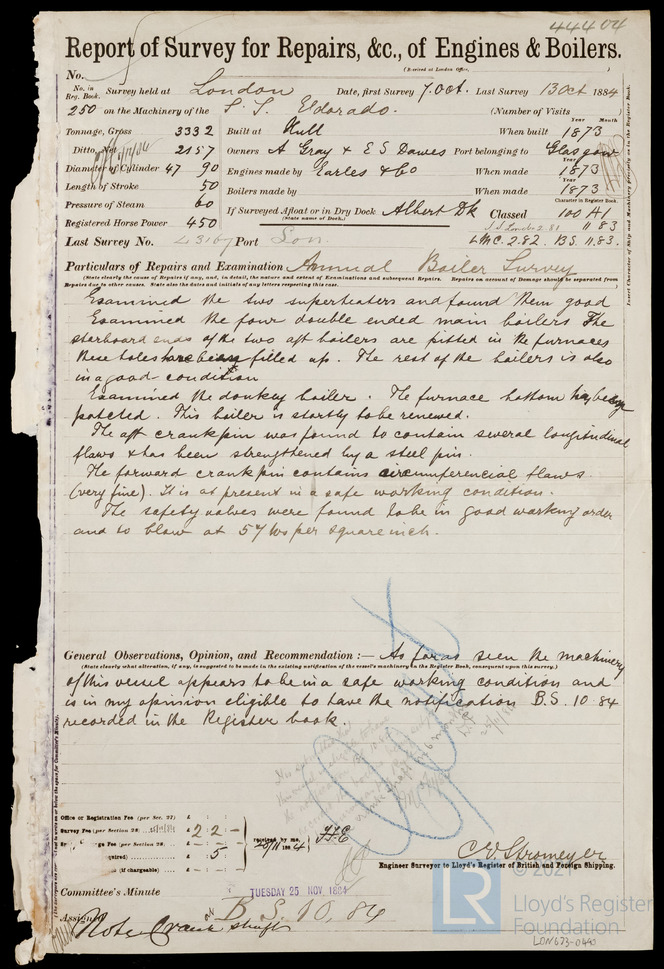 44404
Report of Survey for Repairs, &c., of Engines & Boilers.
(Received at London Office,
No.
No. in Reg. Book. Survey held at London Date, first Survey 7. Oct. Last Survey 13 Oct 1884
250 on the Machinery of the S. S. Eldorado. (Number of Visits
Tonnage, Gross 3332 Built at Hull When built 1873 Year Month
Ditto, Net 2157 Owners A Gray & E S Dawes Port belonging to Glasgow
Diameter of Cylinder 47 90 Engines made by Earles & Co When made 1873 Year
Length of Stroke 50 Boilers made by When made 1873
Pressure of Steam 60 If Surveyed Afloat or in Dry Dock Albert Dk Classed 100 A1 Character in Register Book.
(State name of Dock.) 11 83
Registered Horse Power 450 S.S. Lond. 2.81
Last Survey No. Port Lon. LMC. 2.82. B.S. 11.83.
Insert Character of Ship and Machinery precisely as in the Register Book.
Particulars of Repairs and Examination Annual Boiler Survey
(State clearly the cause of Repairs if any, and, in detail, the nature and extent of Examinations and subsequent Repairs. Repairs on account of Damage should be separated from
Repairs due to other causes. State also the dates and initials of any letters respecting this case.
Examined the two superheaters and found them good
Examined the four double ended main boilers The
starboard ends of the two aft boilers are pitted in the furnaces
these holes have being filled up. The rest of the boilers is also
in a good condition
Examined the donkey boiler. The furnace bottom has been
patched. This boiler is shortly to be renewed.
The aft crankpin was found to contain several longitudinal
flaws & has been strengthened by a steel pin.
The forward crankpin contains circumferencial flaws
(very fine). It is at present in a safe working condition.
The safety valves were found to be in good working order
and to blow at 57 lbs per square inch.
General Observations, Opinion, and Recommendation :— As far as seen the machinery
(State clearly what alteration, if any, is suggested to be made in the existing notification of the vessel's machinery in the Register Book, consequent upon this survey.)
of this vessel appears to be in a safe working condition and
is in my opinion eligible to have the notification B.S. 10.84
recorded in the Register book.
Office or Registration Fee (per Sec. 27) £ : :
Survey Fee (per Section 28) £ 2 : 2 : –
Fee (per Section 28) £ : :
received by me,
25/11 1884
required) £ : 5 :
(if chargeable) £ : :
C. E. Stromeyer
Engineer Surveyor to Lloyd's Register of British and Foreign Shipping.
Committee's Minute TUESDAY 25 NOV. 1884
Assigned B. S. 10, 84
Note Crank shaft
© 2021
LR
Lloyd's Register
Foundation
LON673-0490